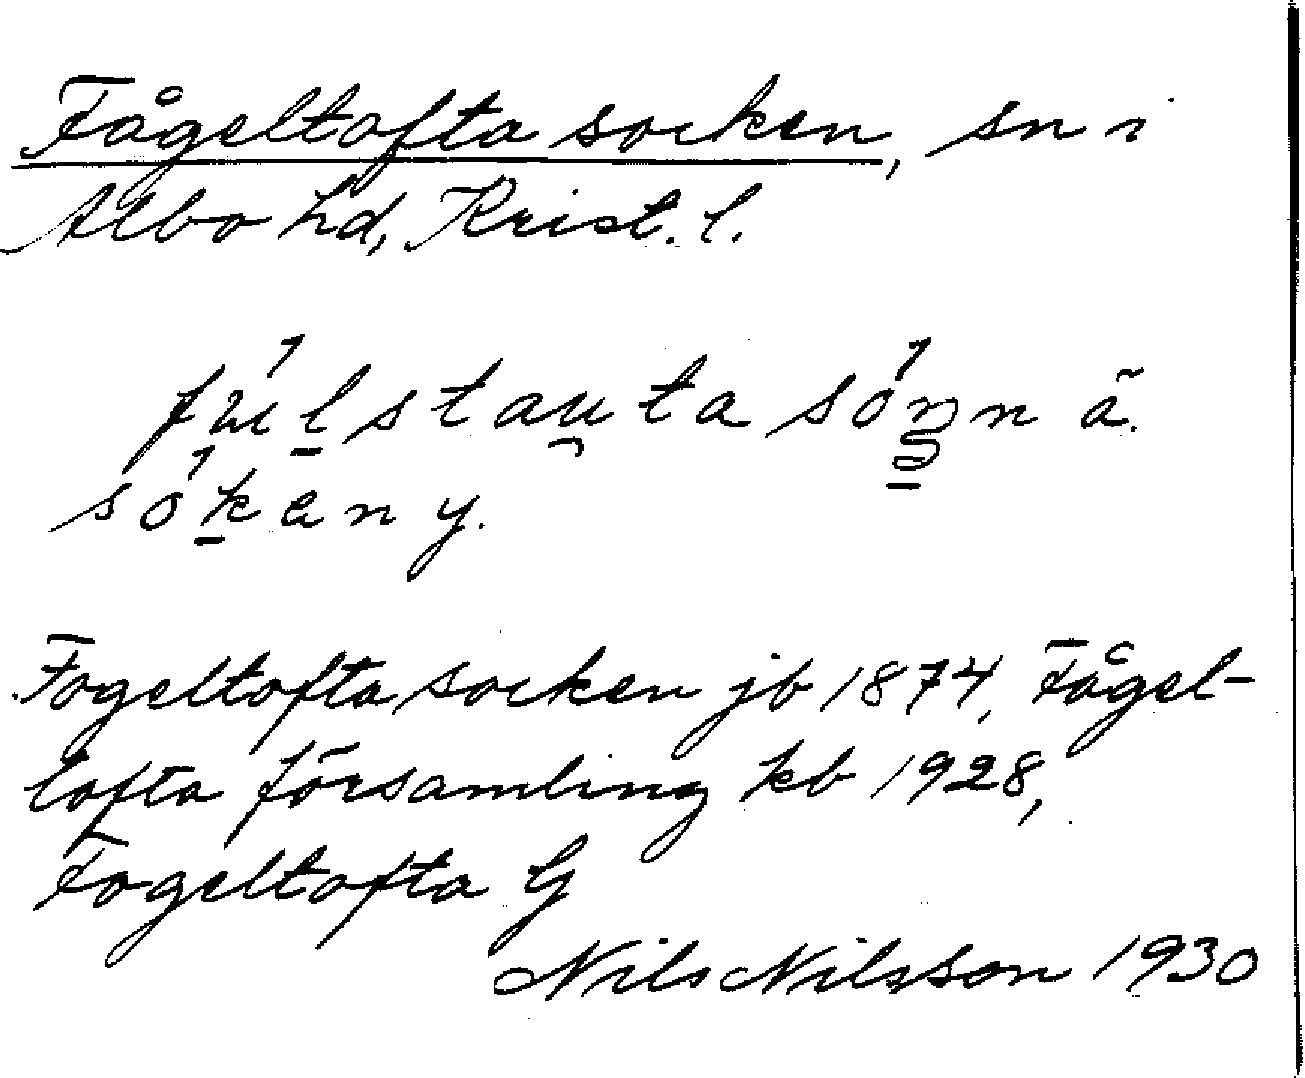 Fågeltofta socken, sn i
Albo hd, Krist. l.
fúlstau̯ta són ä.
sókan y.
Fogeltofta socken jb 1874, Fågel-
tofta församling kb 1928,
Fogeltofta G
Nils Nilsson 1930